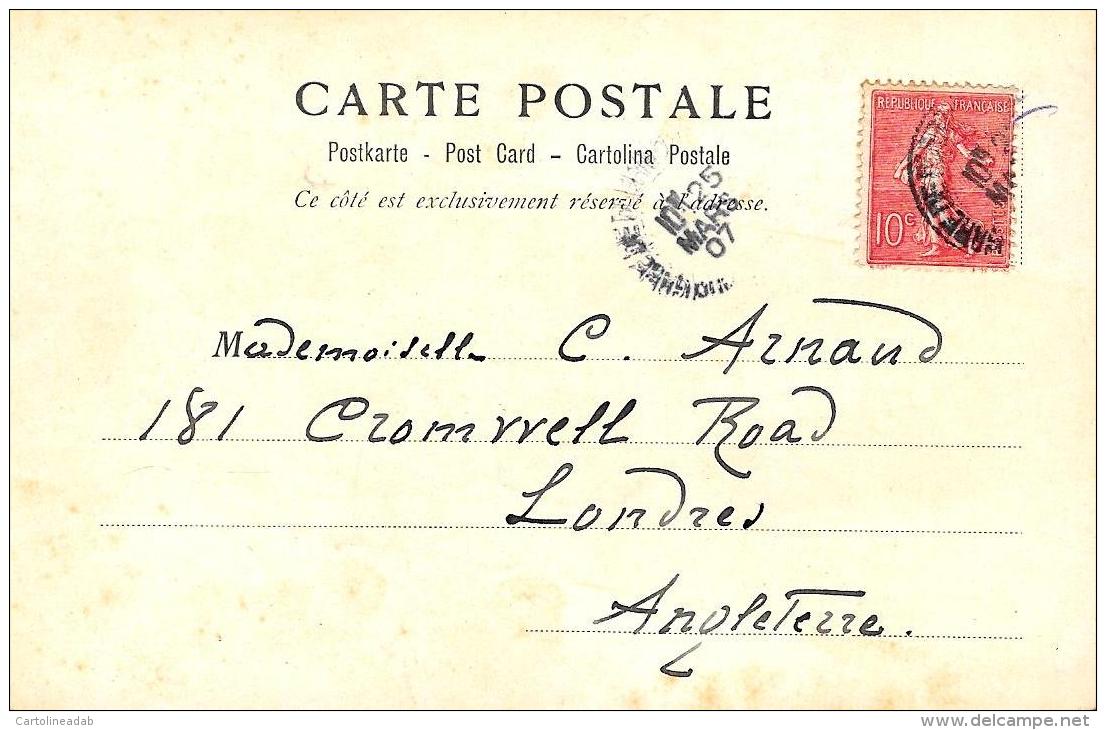 CARTE POSTALE
Postkarte - Post Card - Cartolina Postale
Ce côté est exclusivement réservé à l'adresse.
REPUBLIQUE FRANÇAISE
10c
25
MARS
07
Mademoiselle C. Arnaud
181 Cromwell Road
Londres
Angleterre.
Cartolineadab
delcampe.net